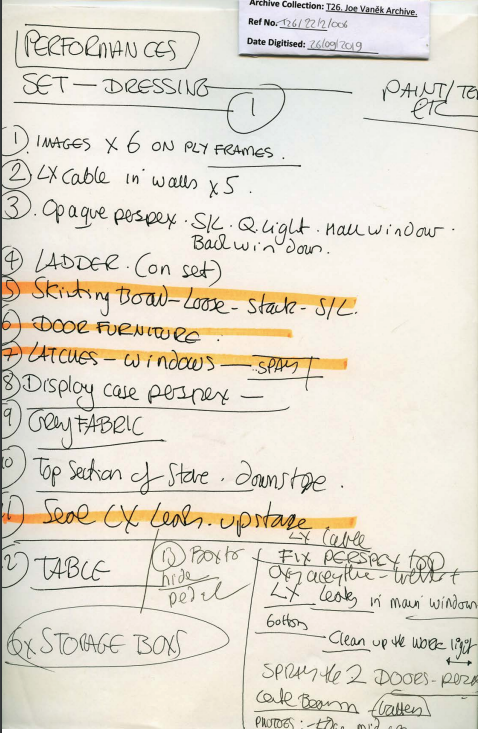 Archive Collection: T26. Joe Vaněk Archive.
Ref No. T26/22/2/006
Date Digitised: 26/09/2019
PERFORMANCES
SET - DRESSING
PAINT/TE
ETC
1
1 IMAGES x 6 ON PLY FRAMES.
2 LX Cable in walls x 5.
3. Opaque perspex. S/L. Q. Light. Hall window.
Back window.
4 LADDER. (on set)
5 Skirting Board - Loose - Stack - S/L.
6 DOOR FURNITURE.
7 LATCHES - windows - SPAY
8 Display case perspex -
9 Grey FABRIC
10 Top Section of Stove. downstage.
11 Seal LX leaks. upstage
12 TABLE
13 BOX to
hide
pedal
6x STORAGE BOXS
LX Cable
FIX PERSPEX top
LX leaks in main window
bottom
Clean up the WORK light
SPRAY the 2 DOORS -
Beam (batten)
PHOTOS: